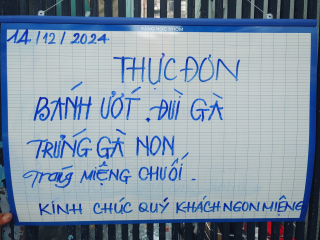 14/12/2024
THỰC ĐƠN
BÁNH ƯỚT. ĐÙI GÀ
TRỨNG GÀ NON
Tráng MIỆNG CHUỐI.
KÍNH CHÚC QUÝ KHÁCH NGON MIỆNG